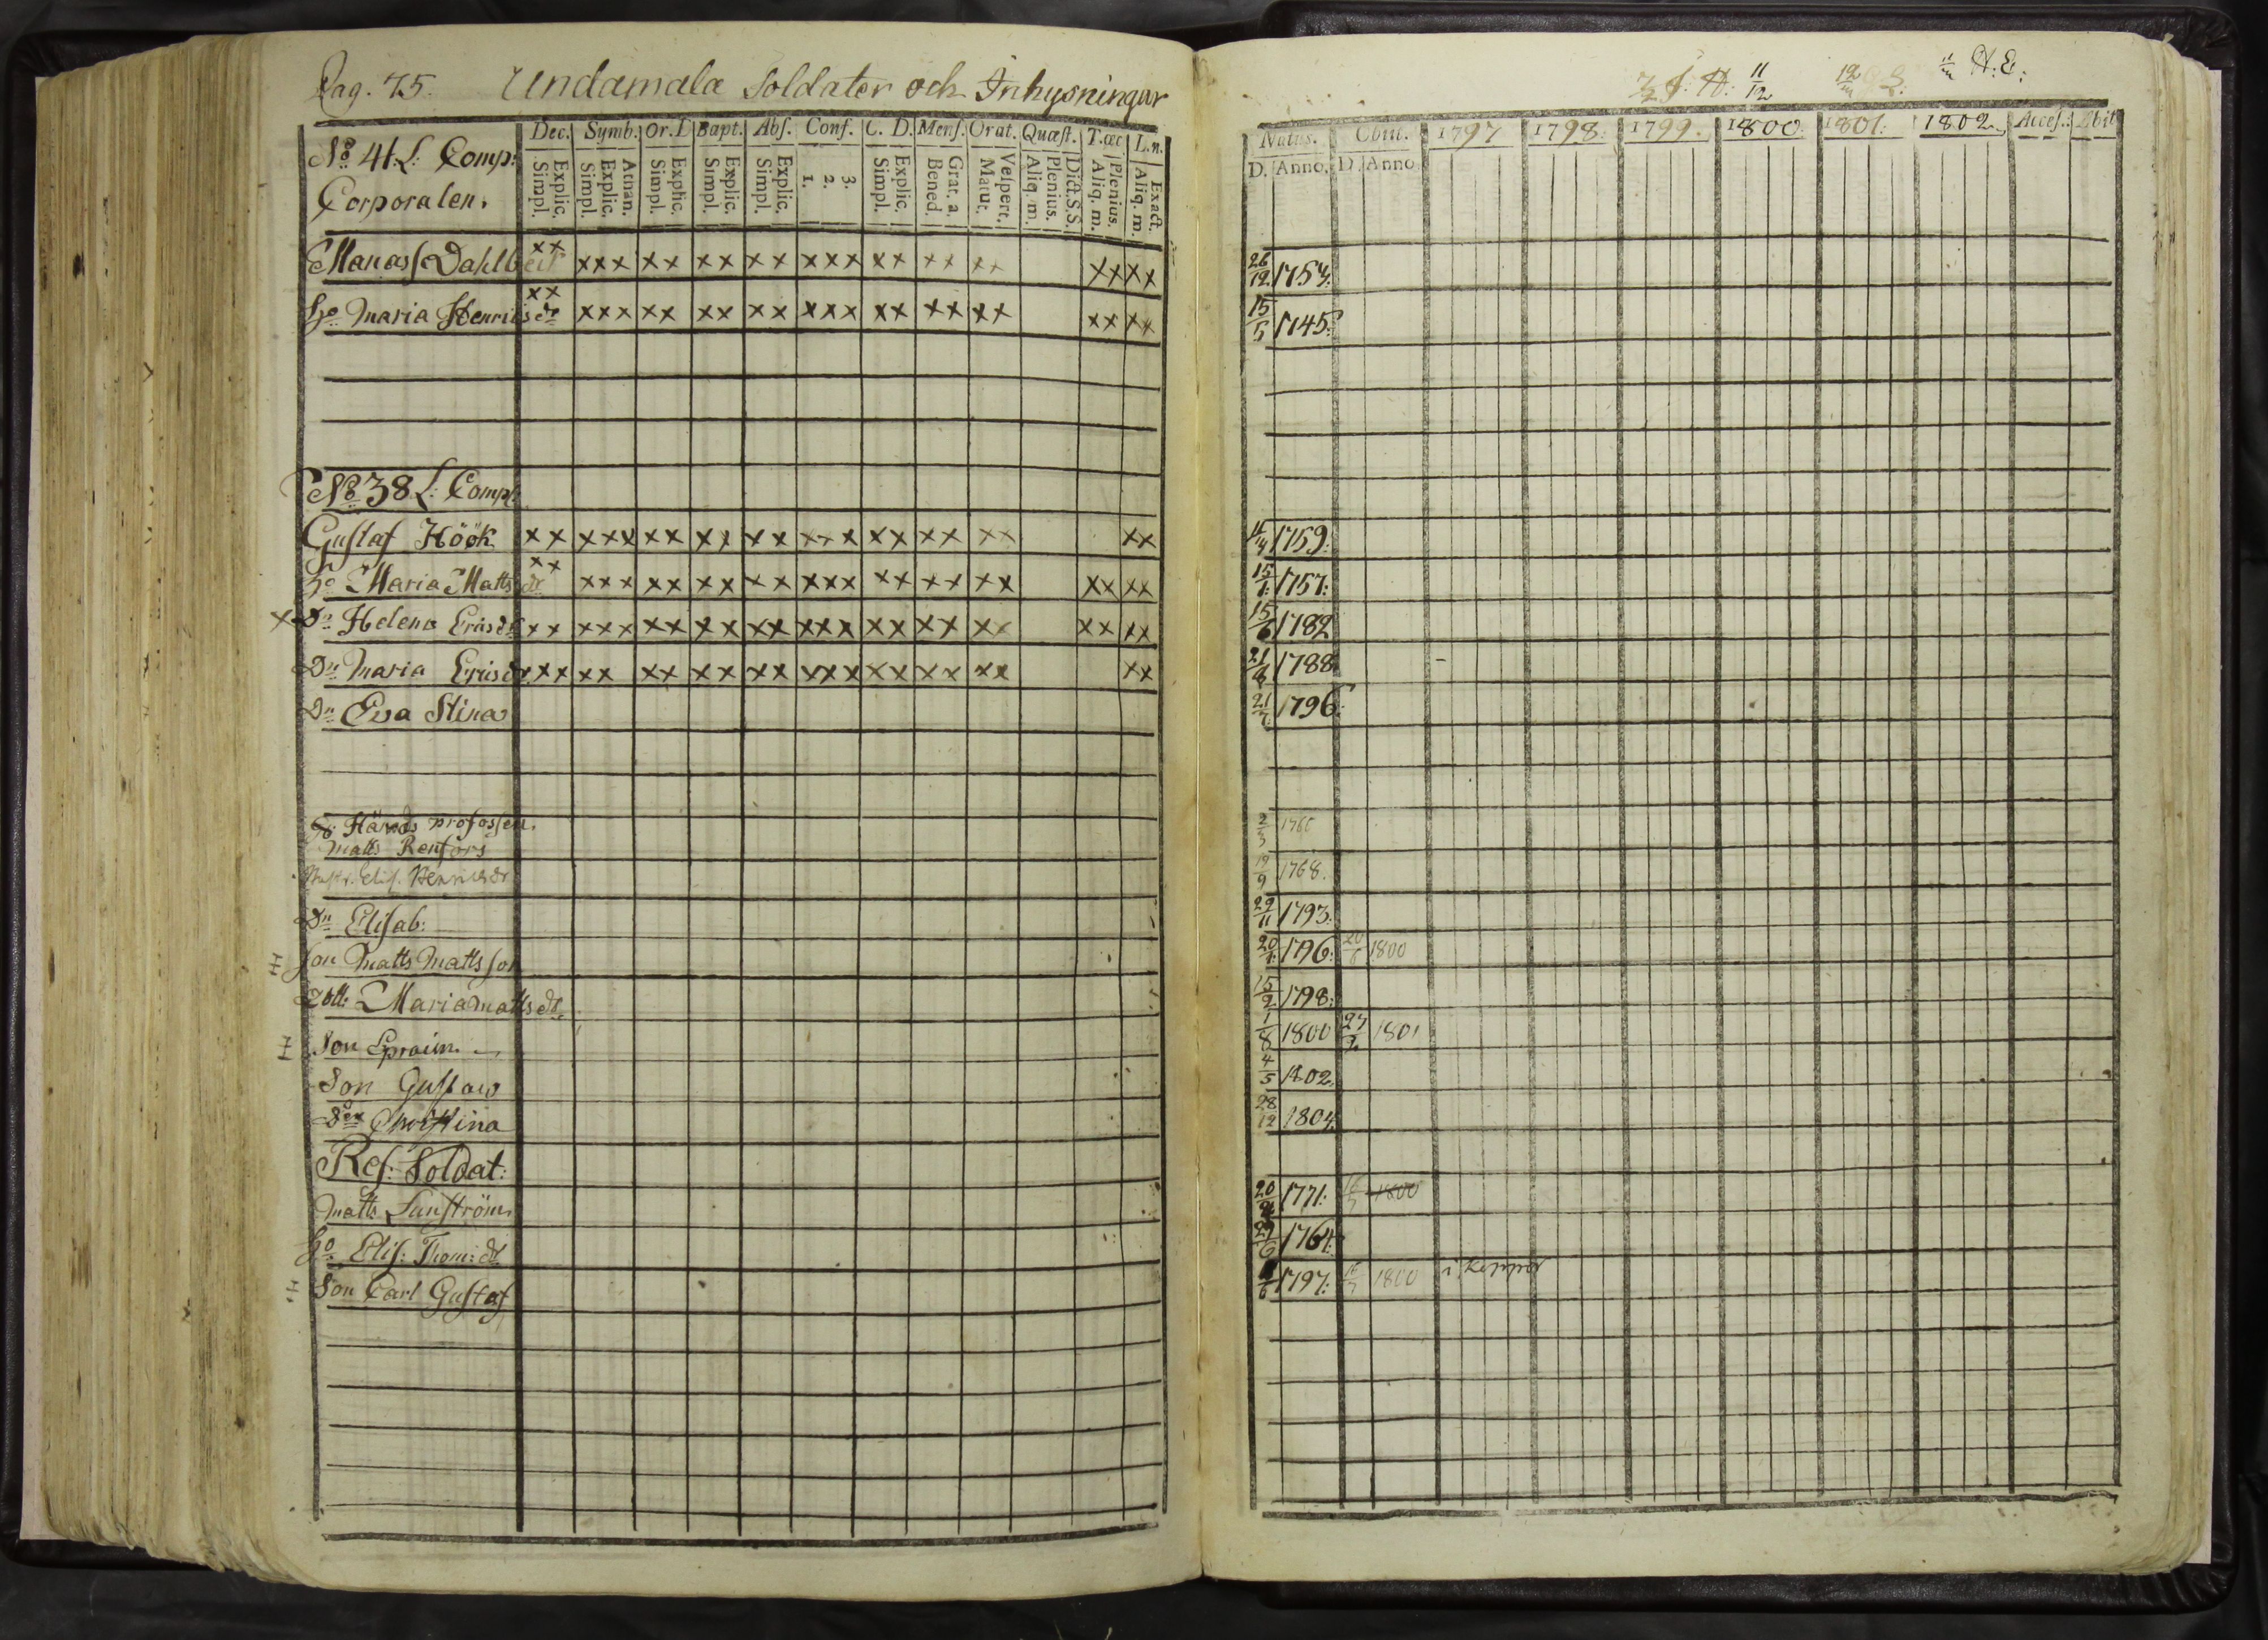 Pag. 75. Undamala Soldater och Inhysningar
No 41. L: Comp:
Corporalen.
Dec. Symb. Or. D Bapt. Abs. Conf. C. D. Mens. Orat. Quæst. T. œc L. n.
Explic. Simpl. Athan. Explic. Simpl. Explic. Simpl. Explic. Simpl. Explic. Simpl. 3. 2. 1. Explic. Simpl. Grat. a. Bened. Vespert. Matut. Dict. S.S. Plenius. Aliq. m. Plenius. Aliq. m. Exact. Aliq. m.
Manass Dahlbeit xx xxx xx xx xx xxx xx xx xx xx xx
Ho Maria Henricsdr xx xxx xx xx xx xxx xx xx xx xx xx
No 38 L: Comp:
Gustaf Höök xx xxx xx xx xx xxx xx xx xx xx
Ho Maria Mattsdr xx xxx xx xx xx xxx xx xx xx xx xx
x Dr Helena Ericsdr xx xxx xx xx xx xxx xx xx xx xx xx
Dr Maria Ericsdr xx xx xx xx xx xxx xx xx xx xx
Dr Eva Stina
Härads profossen.
Matts Renfors
Hustr. Elis. Henricsdr
Dr Elisab:
Son Matts Mattsson
Dott: Maria Mattsdr
Son Epraim
Son Gustaw
Dr Christina
Res. Soldat:
Matts Sunström
Ho Elis: Thom: dr
Son Carl Gustaf
11/12 12/m 11/m H. E:
Natus. Obiit. 1797 1798. 1799. 1800. 1801. 1802. Acces. Abit
D. Anno. D. Anno
26/12 1754.
15/5 1745.
1759.
15/1 1757.
15/6 1782
1788
21/7 1796.
2/3 1760
19/9 1768.
29/11 1793.
20/1 1796. 20/6 1800
15/2 1798.
1/8 1800 1801
4/5 1802.
28/12 1804
1771. 1800
1764.
1797. 1800 i Koppor